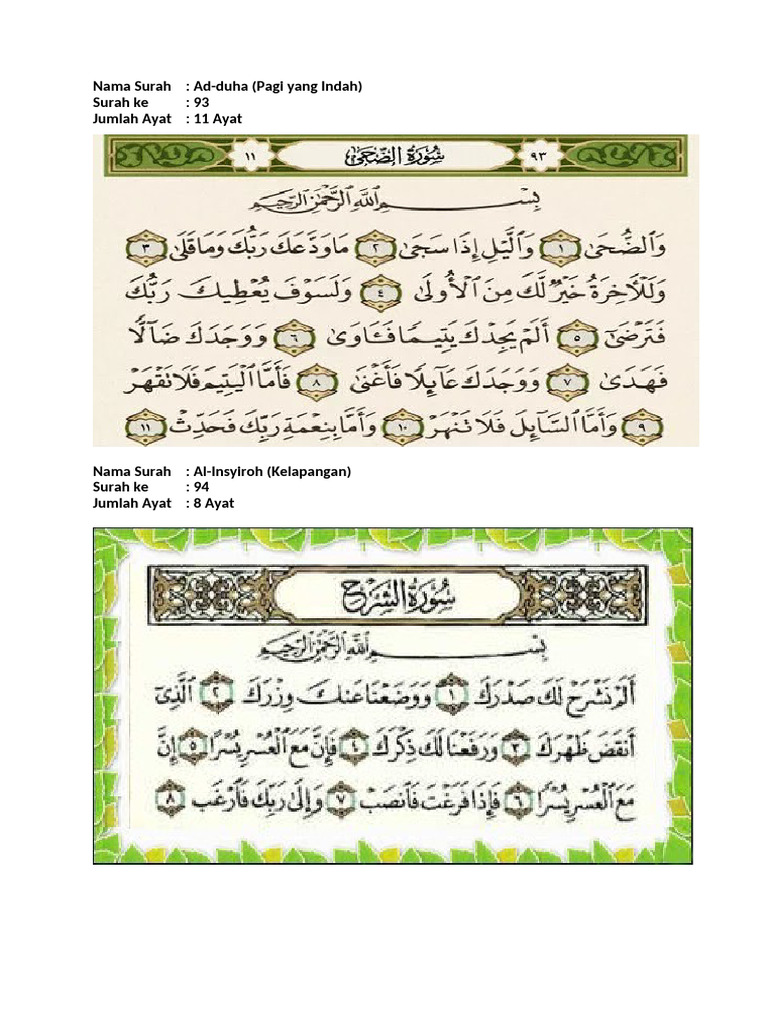 Nama Surah : Ad-duha (Pagi yang Indah)
Surah ke : 93
Jumlah Ayat : 11 Ayat
١١ سُورَةُ الضُّحَىٰ ٩٣
بِسْمِ اللَّهِ الرَّحْمَٰنِ الرَّحِيمِ
وَالضُّحَىٰ ١ وَاللَّيْلِ إِذَا سَجَىٰ ٢ مَا وَدَّعَكَ رَبُّكَ وَمَا قَلَىٰ ٣
وَلَلْآخِرَةُ خَيْرٌ لَّكَ مِنَ الْأُولَىٰ ٤ وَلَسَوْفَ يُعْطِيكَ رَبُّكَ
فَتَرْضَىٰ ٥ أَلَمْ يَجِدْكَ يَتِيمًا فَـَٔاوَىٰ ٦ وَوَجَدَكَ ضَآلًّا
فَهَدَىٰ ٧ وَوَجَدَكَ عَآئِلًا فَأَغْنَىٰ ٨ فَأَمَّا الْيَتِيمَ فَلَا تَقْهَرْ
٩ وَأَمَّا السَّآئِلَ فَلَا تَنْهَرْ ١٠ وَأَمَّا بِنِعْمَةِ رَبِّكَ فَحَدِّثْ ١١
Nama Surah : Al-Insyiroh (Kelapangan)
Surah ke : 94
Jumlah Ayat : 8 Ayat
سُورَةُ الشَّرْحِ
بِسْمِ اللَّهِ الرَّحْمَٰنِ الرَّحِيمِ
أَلَمْ نَشْرَحْ لَكَ صَدْرَكَ ١ وَوَضَعْنَا عَنكَ وِزْرَكَ ٢ الَّذِىٓ
أَنقَضَ ظَهْرَكَ ٣ وَرَفَعْنَا لَكَ ذِكْرَكَ ٤ فَإِنَّ مَعَ الْعُسْرِ يُسْرًا ٥ إِنَّ
مَعَ الْعُسْرِ يُسْرًا ٦ فَإِذَا فَرَغْتَ فَانصَبْ ٧ وَإِلَىٰ رَبِّكَ فَارْغَب ٨